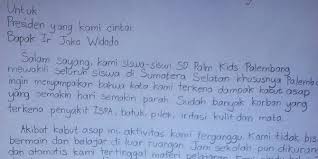 Untuk
Presiden yang kami cintai
Bapak Ir Joko Widodo
Salam sayang, kami siswa-siswi SD Palm Kids Palembang
mewakili seluruh siswa di Sumatera Selatan khususnya Palemb
ingin menyampaikan bahwa kota kami terkena dampak kabut asap
yang semakin hari semakin parah. Sudah banyak korban yang
terkena penyakit ISPA, batuk, pilek, iritasi kulit dan mata.
Akibat kabut asap ini, aktivitas kami terganggu. Kami tidak bis
bermain dan belajar di luar ruangan. Jam sekolah pun dikuran
dan otomatis kami tertinggal materi